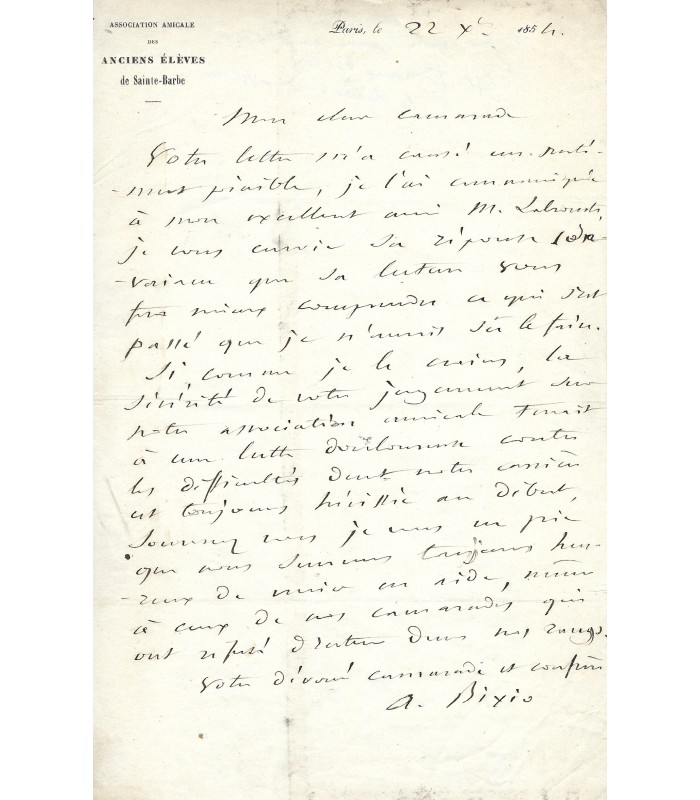 ASSOCIATION AMICALE
DES
ANCIENS ÉLÈVES
de Sainte-Barbe
Paris, le 22 Xbre 1854.
Mon cher camarade
Votre lettre m'a causé un senti-
-ment pénible, je l'ai communiquée
à mon excellent ami M. Labrouste,
je vous envoie sa réponse con-
-vaincu que sa lecture vous
fera mieux comprendre ce qui s'est
passé que je n'aurais su le faire.
Si, comme je le crains, la
sévérité de votre jugement sur
notre association amicale tenait
à une lutte douloureuse contre
les difficultés dont notre carrière
est toujours hérissée au début,
souvenez vous je vous en prie
que nous serons toujours heu-
-reux de venir en aide, même
à ceux de nos camarades qui
ont refusé d'entrer dans nos rangs.
Votre dévoué camarade et confrère
A. Bixio